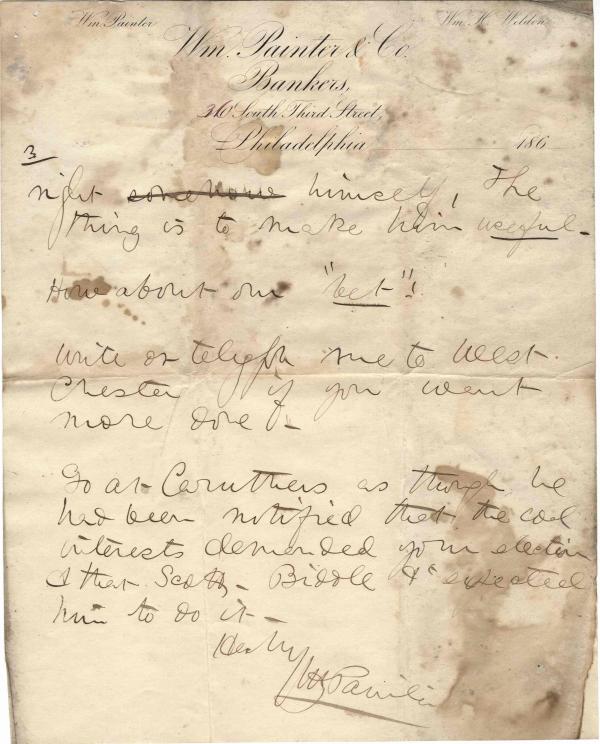 Wm. Painter
Wm. H. Weldon
Wm. Painter & Co.
Bankers,
36 South Third Street,
Philadelphia 186
3
right somehow himself, The
thing is to make him useful.
How about our "bet"!
Write or telegph me to West
Chester if you want
more done
Go at Caruthers as though he
had been notified that the coal
interests demanded your election
& that Scott, Biddle &c expected
him to do it